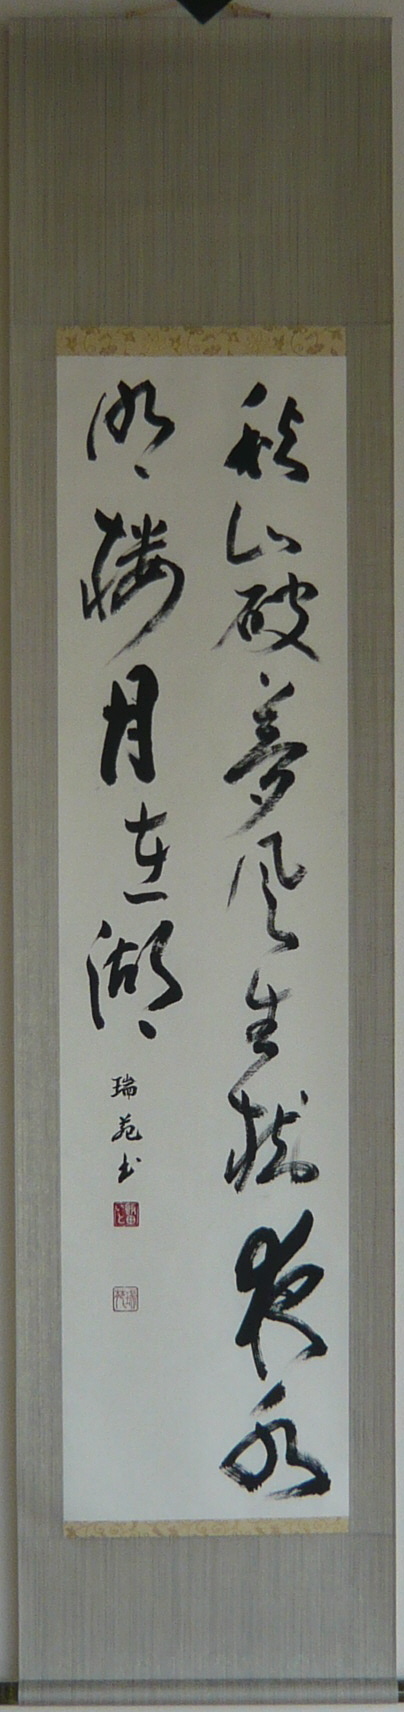 秋山破夢風生樹夜水
明樓月在湖
瑞苑書